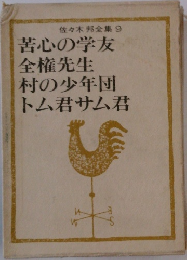 佐々木邦全集9
苦心の学友
全権先生
村の少年団
トム君サム君